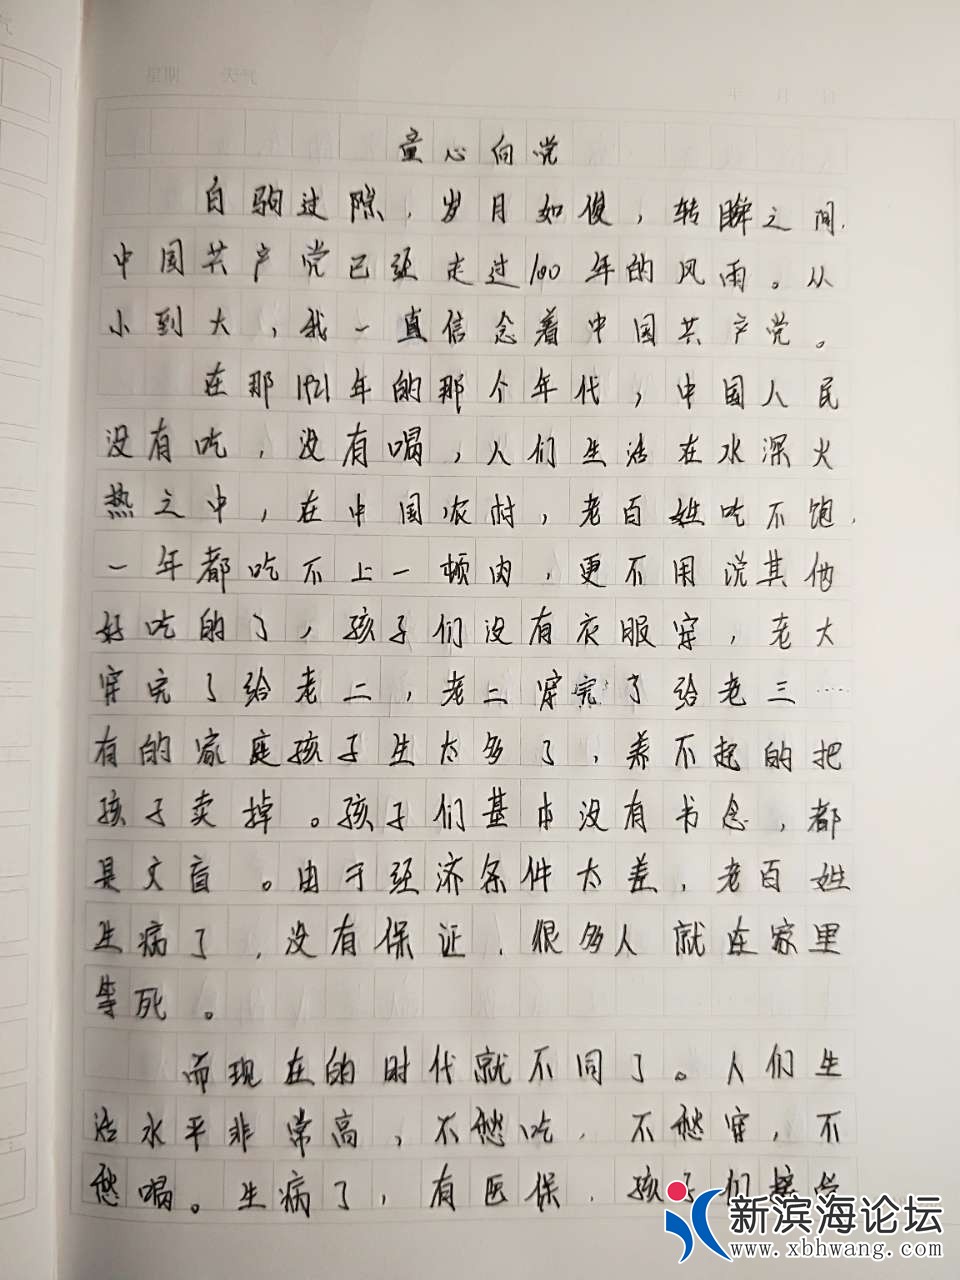 童心向党
白驹过隙，岁月如俊，转眸之间，
中国共产党已经走过100年的风雨。从
小到大，我一直信念着中国共产党。
在那1921年的那个年代，中国人民
没有吃，没有喝，人们生活在水深火
热之中，在中国农村，老百姓吃不饱，
一年都吃不上一顿肉，更不用说其他
好吃的了，孩子们没有衣服穿，老大
穿完了给老二，老二穿完了给老三……
有的家庭孩子生太多了，养不起的把
孩子卖掉。孩子们基本没有书念，都
是文盲。由于经济条件太差，老百姓
生病了，没有保证，很多人就在家里
等死。
而现在的时代就不同了。人们生
活水平非常高，不愁吃，不愁穿，不
愁喝。生病了，有医保，孩子们
新滨海论坛
www.xbhwang.com